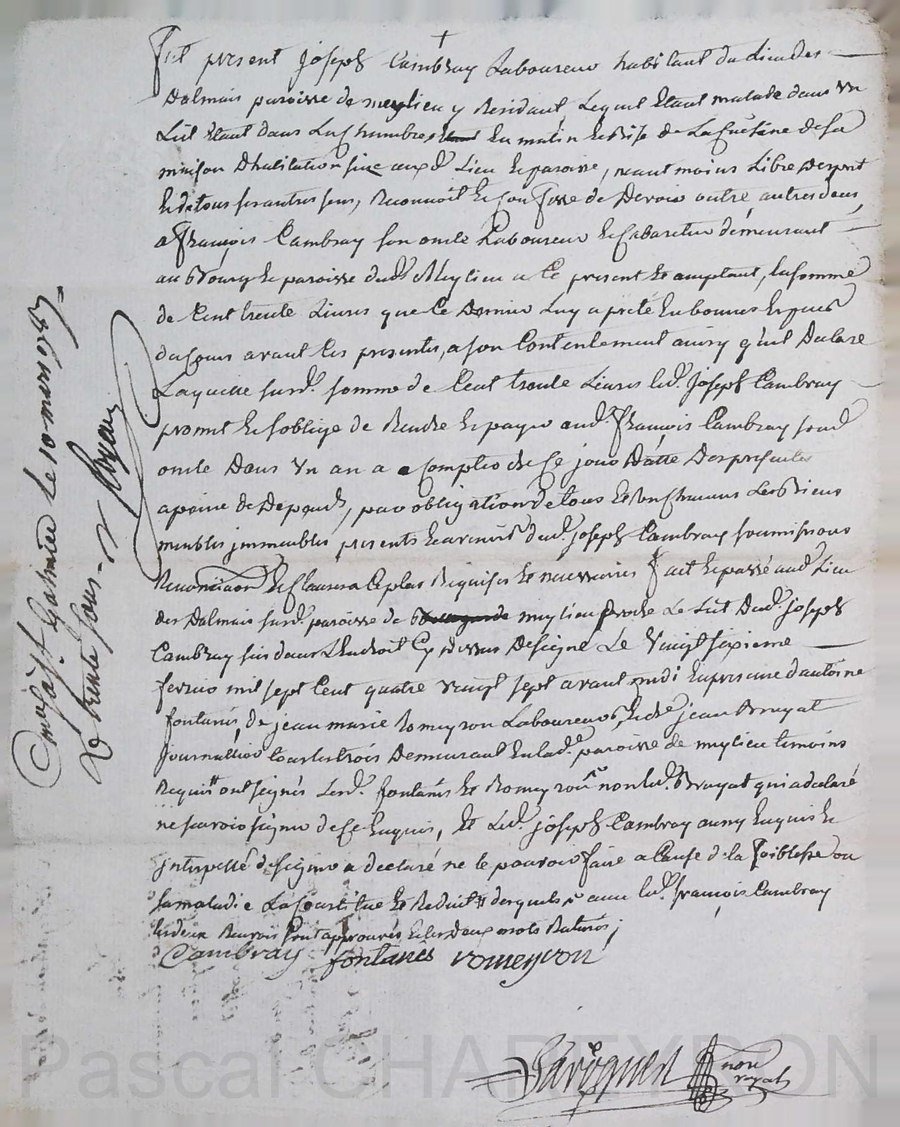 Fut présent Joseph Cambray Laboureur habitant du lieu des
Dalmais paroisse de meylieu y Residant Lequel Etant malade dans un
Lit Etant dans La chambre En matin Et Bise de La Cuisine de sa
maison D'habitation size auxd. Lieu Et paroisse, neant moins Libre Desprit
Et de tous ses autres sens, Reconnoit Et Confesse de Devoir outre autres deus
a François Cambray son oncle Laboureur Et Cabaretier demeurant
au Bourg Et paroisse dud. Meylieu a Ce present Et acceptant, la somme
de Cent trente Livres que Ce Dernier Luy a preté En bonnes Especes
du Cours avant Ces presentes, a son Contentement ainsy qu'il Declare
Laquelle susd. somme de Cent trente Livres led. Joseph Cambray
promet Et soblige de Rendre Et payer aud. François Cambray sond.
oncle Dans un an a Compter de Ce jour Datte Des presentes
a peine de Depends, par obligation de tous Et Biens
meubles immeubles presents Et avenir dud. Joseph Cambray soumissions
Renonciaon Et Clauses a Ce plus Requises Et necessaires fait Et passé aud. Lieu
des Dalmais susd. paroisse de meylieu proche Le Lit Dud. Joseph
Cambray sis dans L'Endroit Cy dessus Designé Le vingt sixieme
fevrier mil sept Cent quatre vingt sept avant midi En presence d'antoine
fontanés, de jean marie Romeyron Laboureurs, Et de jean Bruyat
journallier tous les trois Demeurant En lad. paroisse de meylieu temoins
Requis ont signés Lesd. fontanés Et Romeyron non led. Bruyat qui a declaré
ne savoir signer de Ce Enquis, Et Led. Joseph Cambray aussy Enquis Et
interpellé de signer a declaré ne le pouvoir faire a Cause de la foiblesse ou
sa maladie La Constitue Et Reduit avec led. François Cambray
Les deux Renvois sont approuvés Et les deux mots Raturés
Cambray fontanés romeyron
non
royal
a St Galmier Le 10 mars 1787
R trente sous
Pascal CHARTEYRON